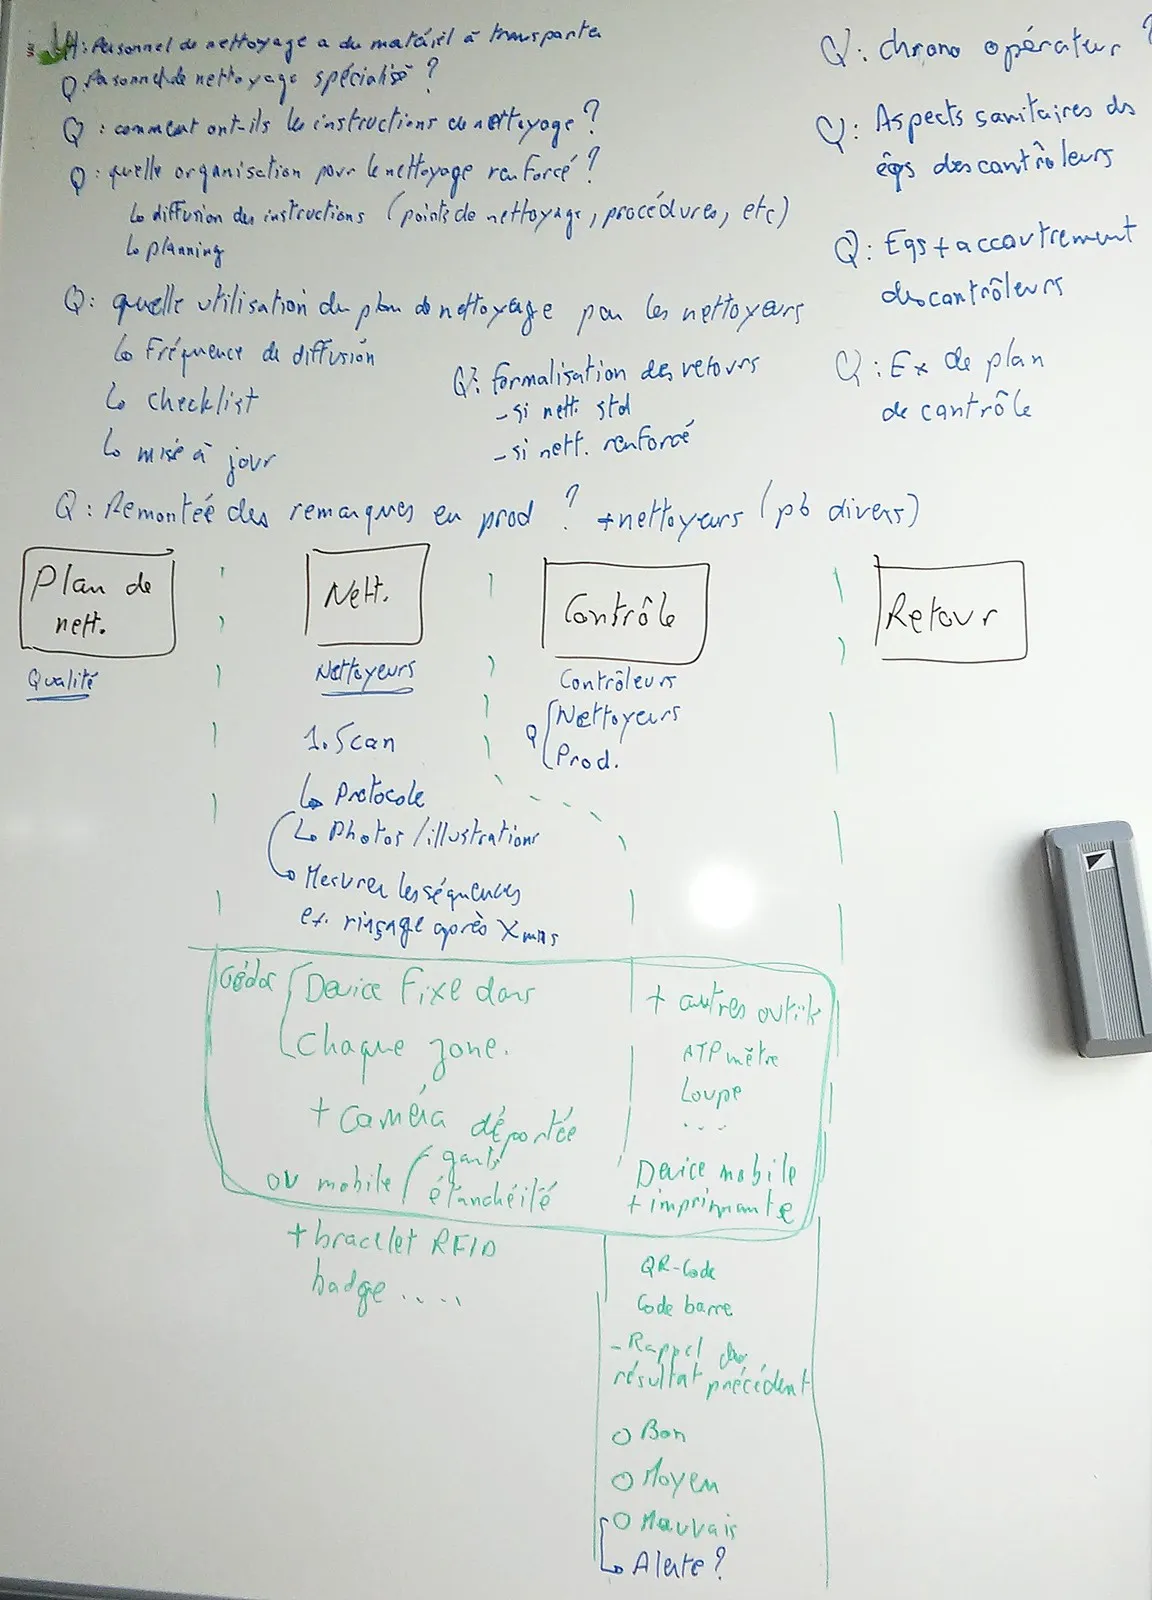 H: Personnel de nettoyage a du matériel à transporter
Q: Personnel de nettoyage spécialisé ?
Q: comment ont-ils les instructions de nettoyage ?
Q: quelle organisation pour le nettoyage renforcé ?
↳ diffusion des instructions (points de nettoyage, procédures, etc)
↳ planning
Q: quelle utilisation du plan de nettoyage par les nettoyeurs
↳ Fréquence de diffusion
↳ checklist
↳ mise à jour
Q: formalisation des retours
- si nett. std
- si nett. renforcé
Q: Remontée des remarques en prod ? + nettoyeurs (pb divers)
Q: chrono opérateur ?
Q: Aspects sanitaires des
éqs des contrôleurs
Q: Eqs + accoutrement
des contrôleurs
Q: Ex de plan
de contrôle
Plan de
nett.
Qualité
Nett.
Nettoyeurs
1. Scan
↳ Protocole
↳ Photos / illustrations
↳ Mesurer les séquences
ex. rinçage après X mns
Contrôle
Contrôleurs
Q Nettoyeurs
Prod.
Retour
Device Fixe dans
chaque zone.
+ caméra déportée
ou mobile
gants
étanchéité
+ bracelet RFID
badge ....
+ autres outils
ATP mètre
Loupe
...
Device mobile
+ imprimante
QR-Code
Code barre
- Rappel du
résultat précédent
O Bon
O Moyen
O Mauvais
↳ Alerte ?